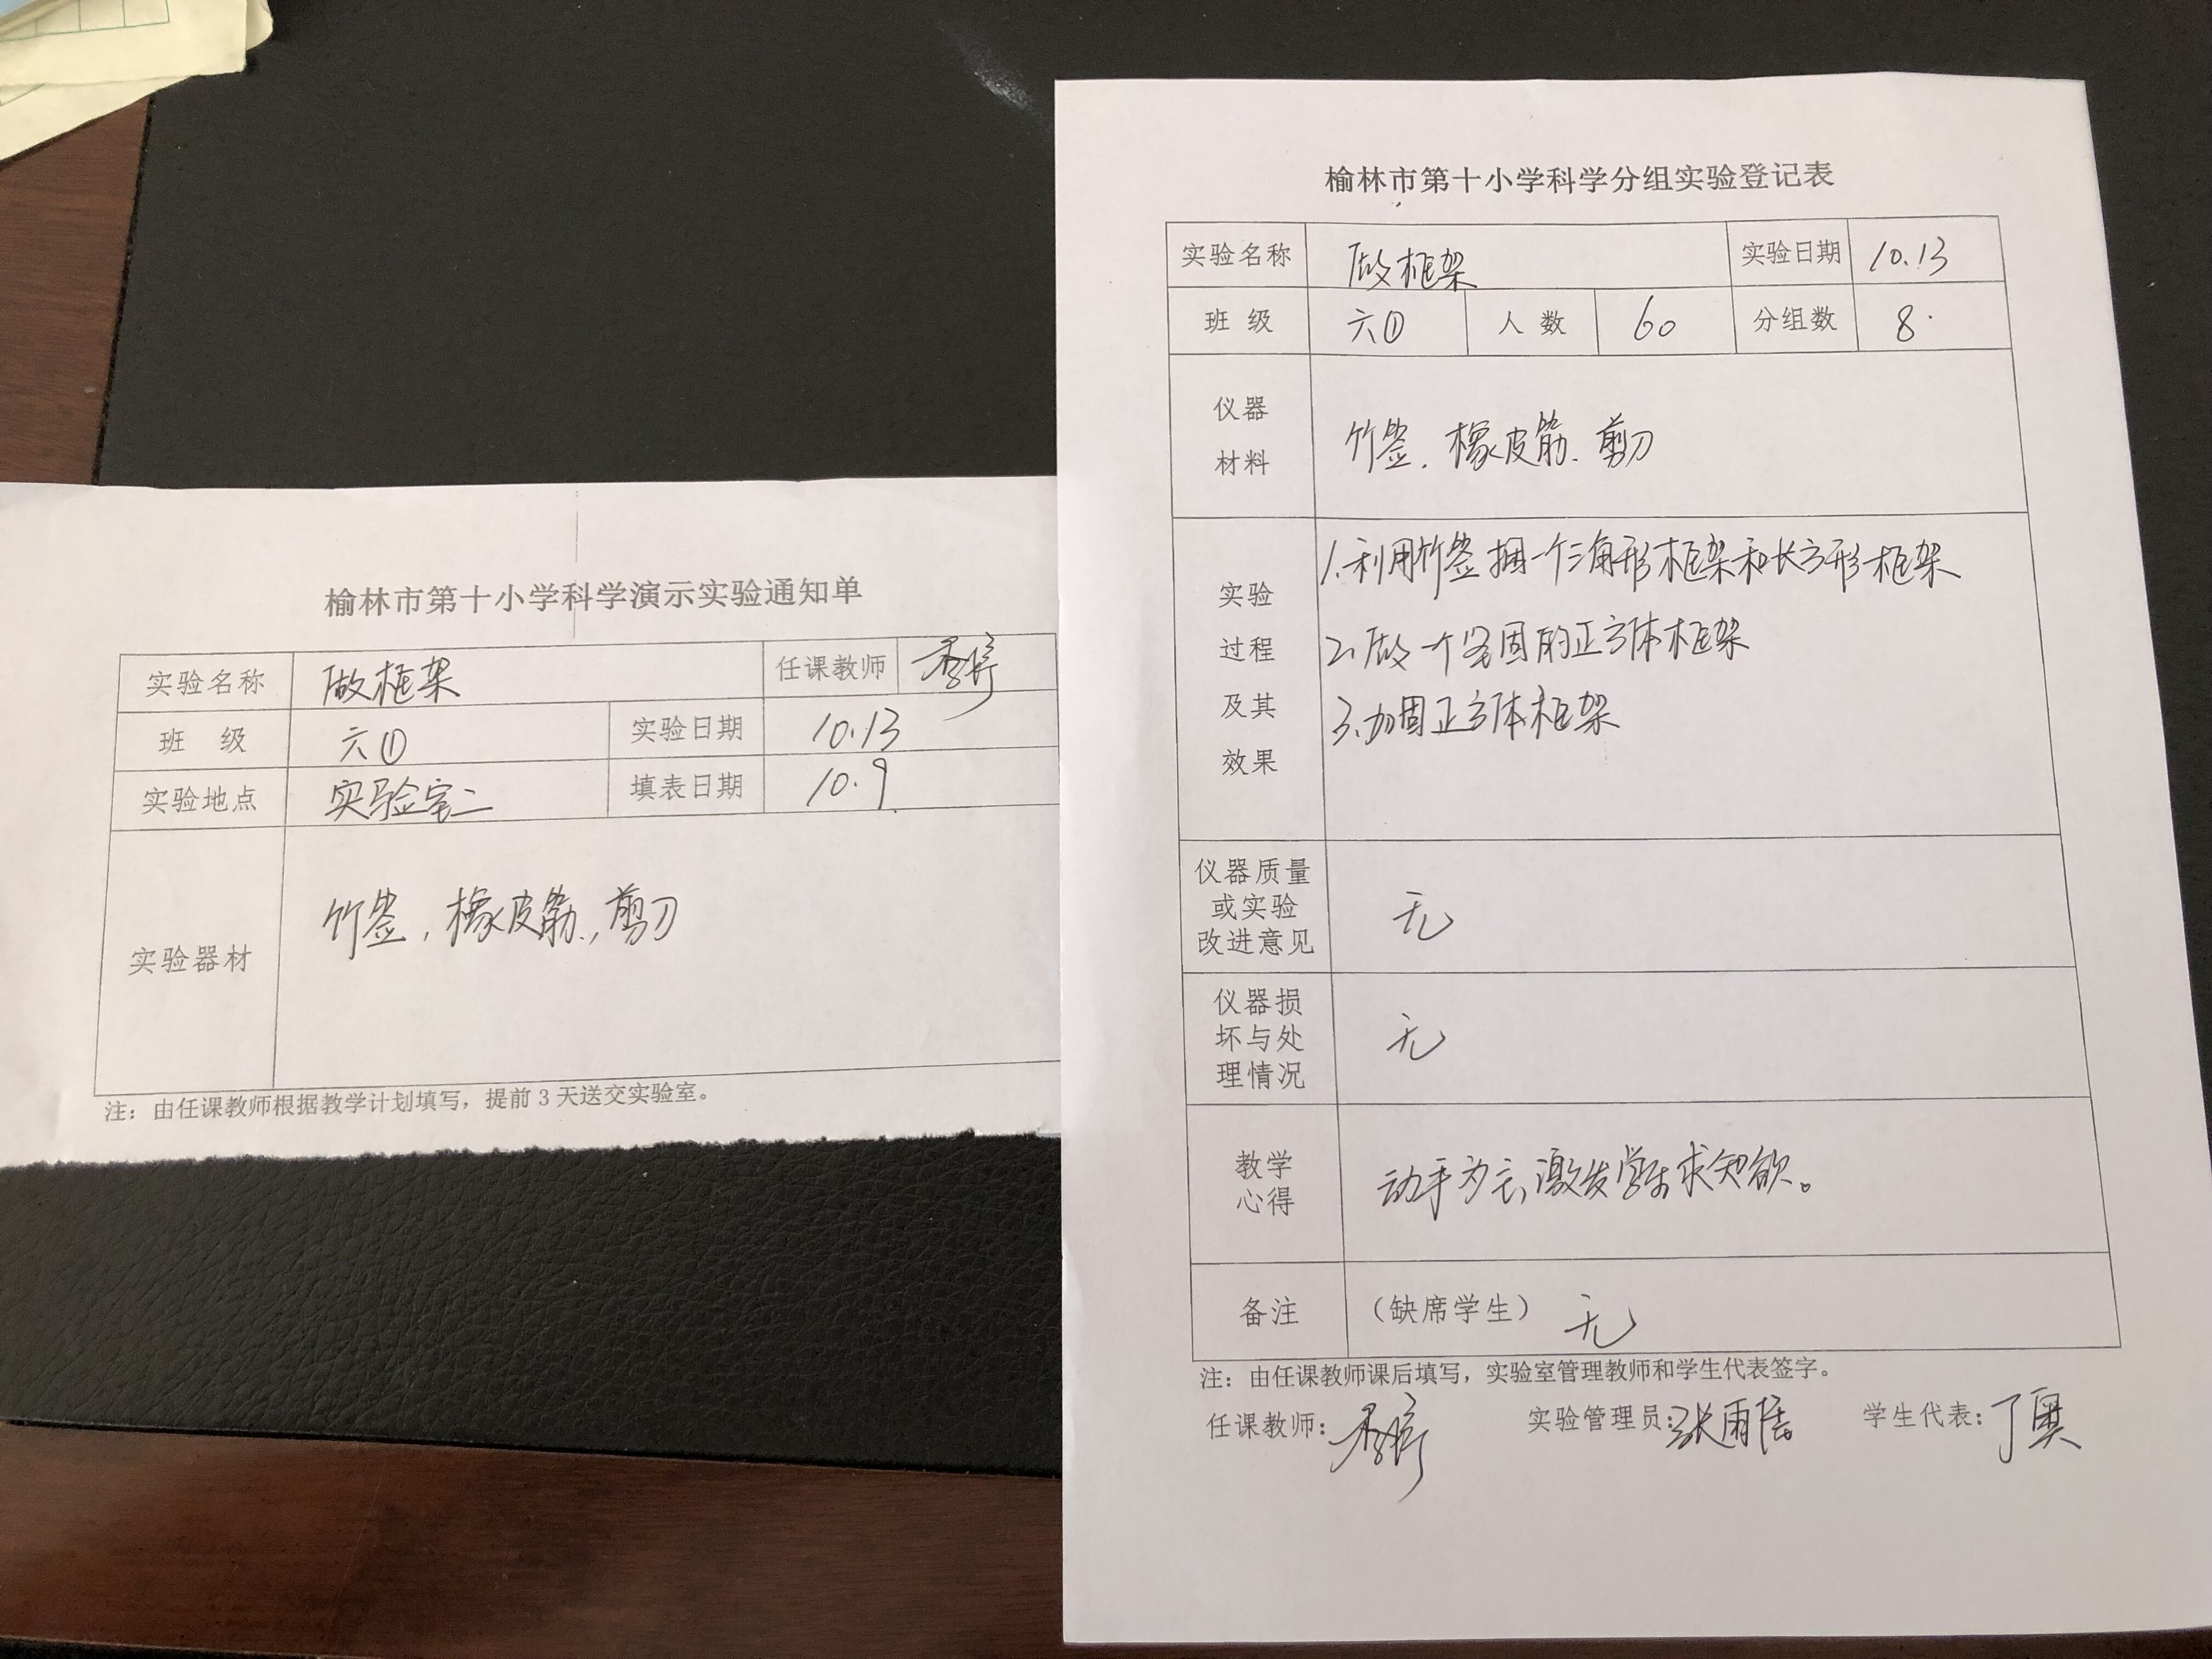 榆林市第十小学科学演示实验通知单
实验名称 做框架 任课教师
班 级 六① 实验日期 10.13
实验地点 实验室二 填表日期 10.9
实验器材 竹签,橡皮筋.,剪刀
注:由任课教师根据教学计划填写,提前3天送交实验室。
榆林市第十小学科学分组实验登记表
实验名称 做框架 实验日期 10.13
班 级 六① 人 数 60 分组数 8
仪器
材料
竹签.橡皮筋.剪刀
实验
过程
及其
效果
1.利用竹签捆一个三角形框架和长方形框架
2.做一个坚固的正方体框架
3.加固正方体框架
仪器质量
或实验
改进意见
无
仪器损
坏与处
理情况
无
教学
心得
动手为主,激发学生求知欲。
备注 (缺席学生) 无
注:由任课教师课后填写,实验室管理教师和学生代表签字。
任课教师: 实验管理员:张雨 学生代表:丁奥